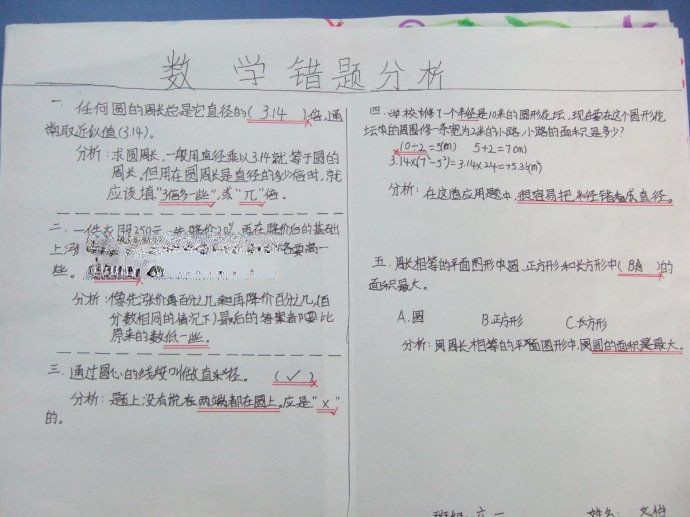 数学错题分析
一、任何圆的周长总是它直径的(3.14)倍,通
常取近似值(3.14)。
分析:求圆周长,一般用直径乘以3.14就等于圆的
周长。但用在圆周长是直径的多少倍时,就
应该填"3倍多一些",或"π"倍。
二、一件衣服250元,先降价20%,再在降价后的基础
上涨
些。
分析:像先涨价百分之几和再降价百分之几(百
分数相同的情况下)最后的答案都要比
原来的数低一些。
三、通过圆心的线段叫做直径。 (✓)
分析:题上没有说在两端都在圆上。应是"×"
的。
四、学校修了一个半径是10米的圆形花坛,现在要在这个圆形花
坛的周围修一条宽为2米的小路,小路的面积是多少?
10÷2=5(m) 5+2=7(m)
3.14×(7²-5²)=3.14×24=75.36(m²)
分析:在这道应用题中,很容易把半径错看成直径。
五、周长相等的平面图形中圆、正方形和长方形中(B)的
面积最大。
A.圆 B.正方形 C.长方形
分析:周长相等的平面图形中,圆的面积是最大。
班级:六一 姓名: